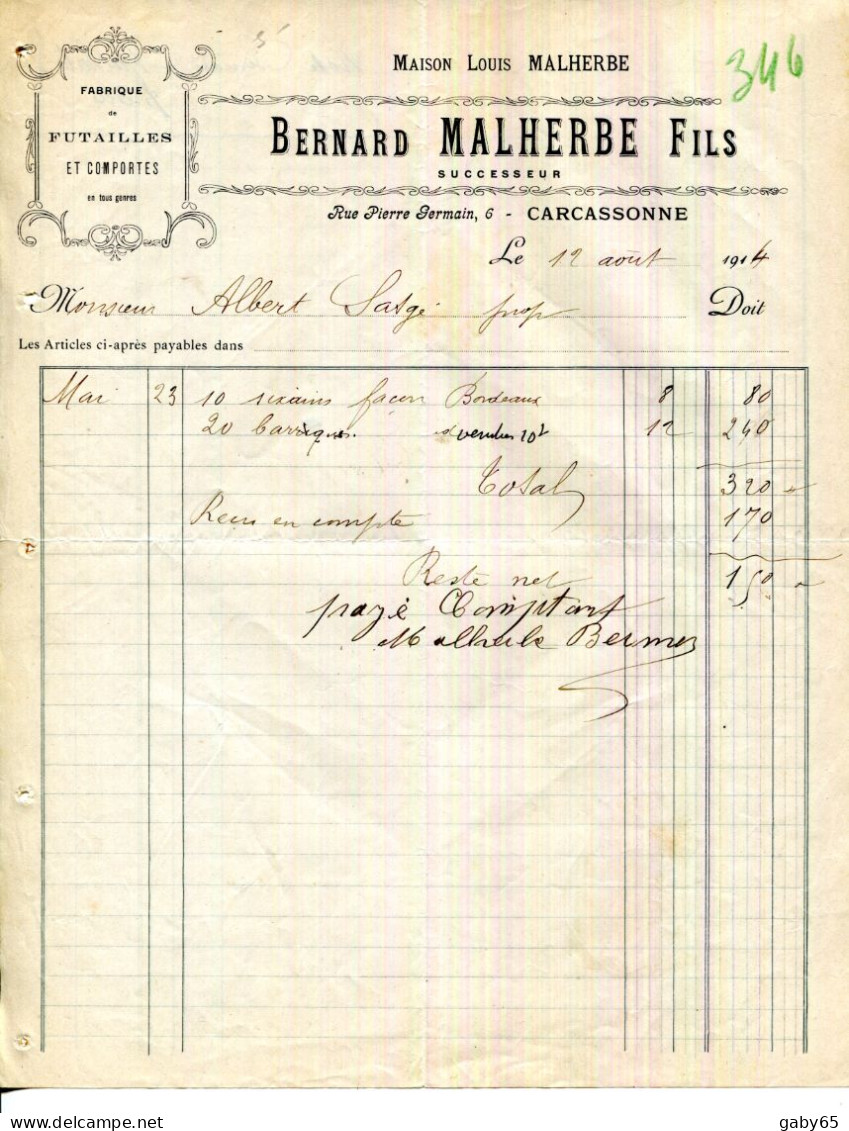 346
MAISON LOUIS MALHERBE
FABRIQUE
de
FUTAILLES
ET COMPORTES
en tous genres
BERNARD MALHERBE FILS
SUCCESSEUR
Rue Pierre Germain, 6 - CARCASSONNE
Le 12 août 1914
Monsieur Albert Satgé prop Doit
Les Articles ci-après payables dans
Mai 23 10 sixains façon Bordeaux 8 80
20 barriques 12 240
Total 320
Reçu en compte 170
Reste net 150
payé Comptant
Malherbe
delcampe.net
gaby65